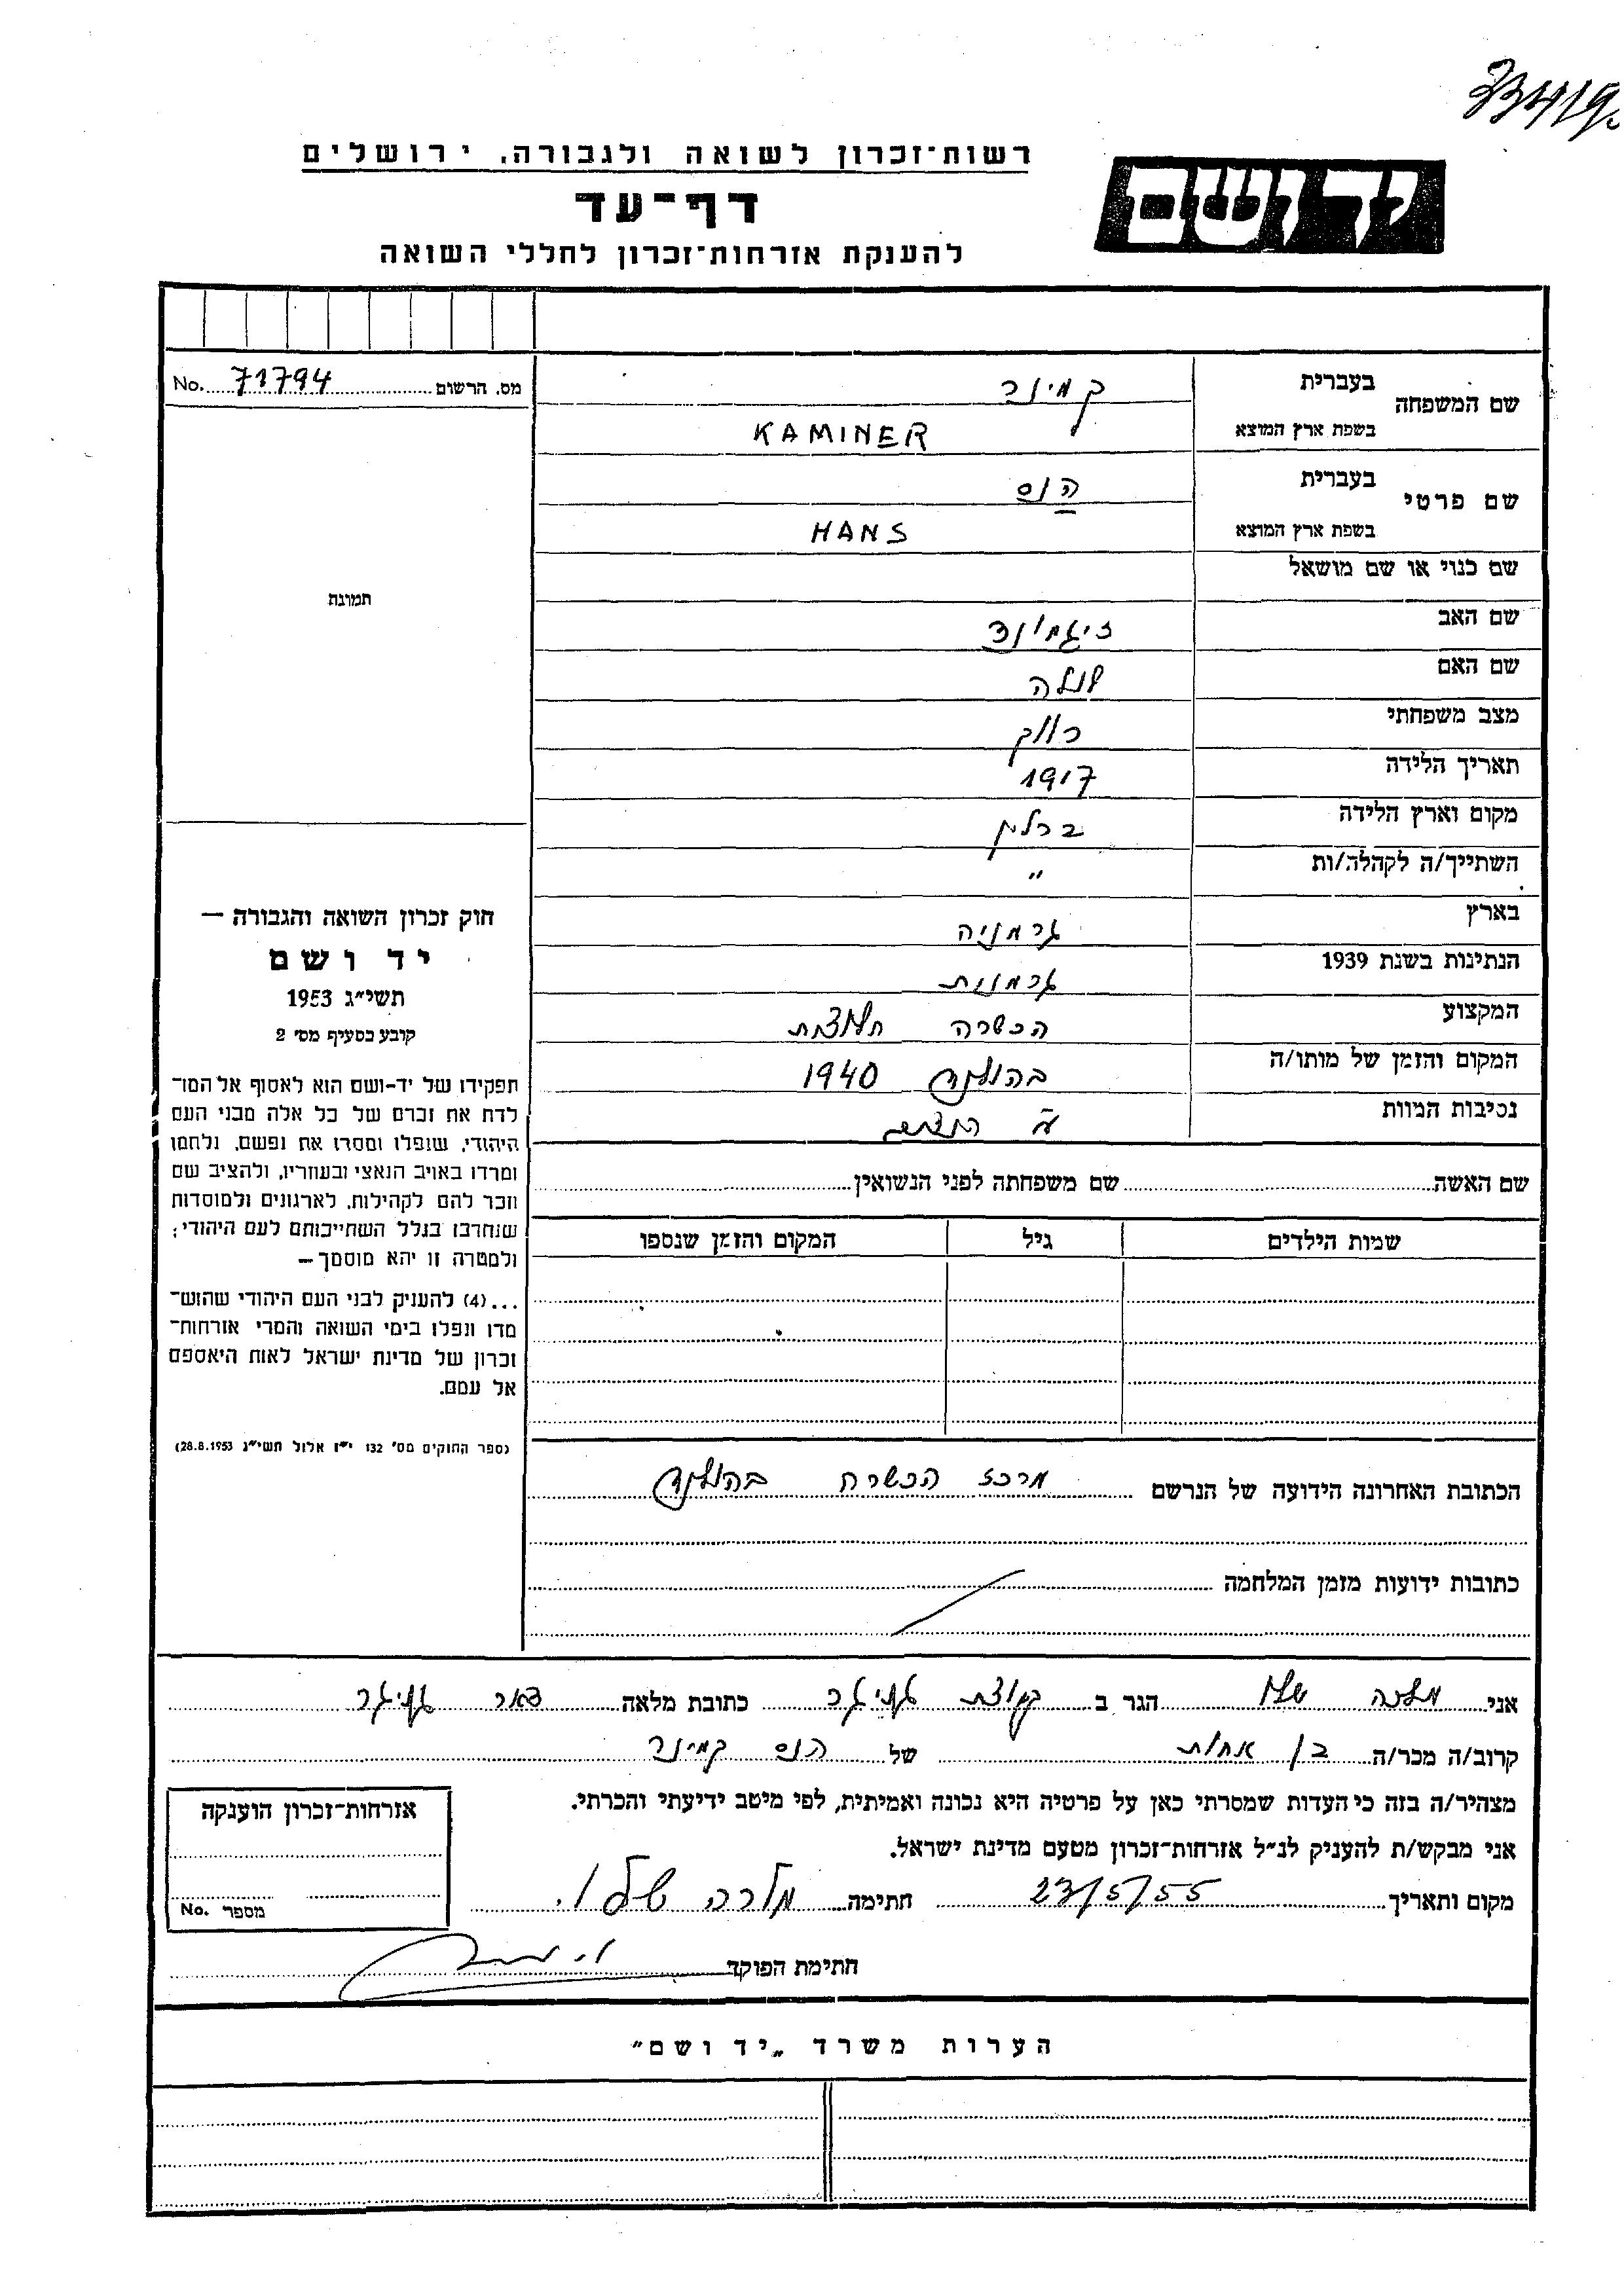 23419.
רשות־זכרון לשואה ולגבורה, ירושלים
יד ושם
דף־עד
להענקת אזרחות־זכרון לחללי השואה
מס. הרשום 71794 No.
שם המשפחה בעברית קמינר
בשפת ארץ המוצא KAMINER
שם פרטי בעברית הנס
בשפת ארץ המוצא HANS
שם כנוי או שם מושאל
תמונה
שם האב זיגמונד
שם האם
מצב משפחתי רווק
תאריך הלידה 1917
מקום וארץ הלידה ברלין
השתייך/ה לקהלה/ות "
בארץ גרמניה
הנתינות בשנת 1939 גרמנית
המקצוע הכשרה חלוצית
המקום והזמן של מותו/ה בהולנד 1940
נסיבות המוות ע"י
חוק זכרון השואה והגבורה —
יד ושם
תשי"ג 1953
קובע בסעיף מס' 2
תפקידו של יד-ושם הוא לאסוף אל המו־
לדת את זכרם של כל אלה מבני העם
היהודי, שנפלו ומסרו את נפשם, נלחמו
ומרדו באויב הנאצי ובעוזריו, ולהציב שם
וזכר להם לקהילות, לארגונים ולמוסדות
שנחרבו בגלל השתייכותם לעם היהודי;
ולמטרה זו יהא מוסמך —
...(4) להעניק לבני העם היהודי שהוש־
מדו ונפלו בימי השואה והמרי אזרחות־
זכרון של מדינת ישראל לאות היאספם
אל עמם.
(ספר החוקים מס' 132 י"ז אלול תשי"ג 28.8.1953)
שם האשה שם משפחתה לפני הנשואין
שמות הילדים גיל המקום והזמן שנספו
הכתובת האחרונה הידועה של הנרשם מרכז הכשרה בהולנד
כתובות ידועות מזמן המלחמה
אני מלכה הגר ב קבוצת גניגר כתובת מלאה דאר גניגר
קרוב/ה מכר/ה בן אחות של הנס קמינר
מצהיר/ה בזה כי העדות שמסרתי כאן על פרטיה היא נכונה ואמיתית, לפי מיטב ידיעתי והכרתי.
אני מבקש/ת להעניק לנ"ל אזרחות־זכרון מטעם מדינת ישראל.
מקום ותאריך 23/5/55 חתימה מלכה
אזרחות־זכרון הוענקה
מספר No.
חתימת הפוקד
הערות משרד „יד ושם"